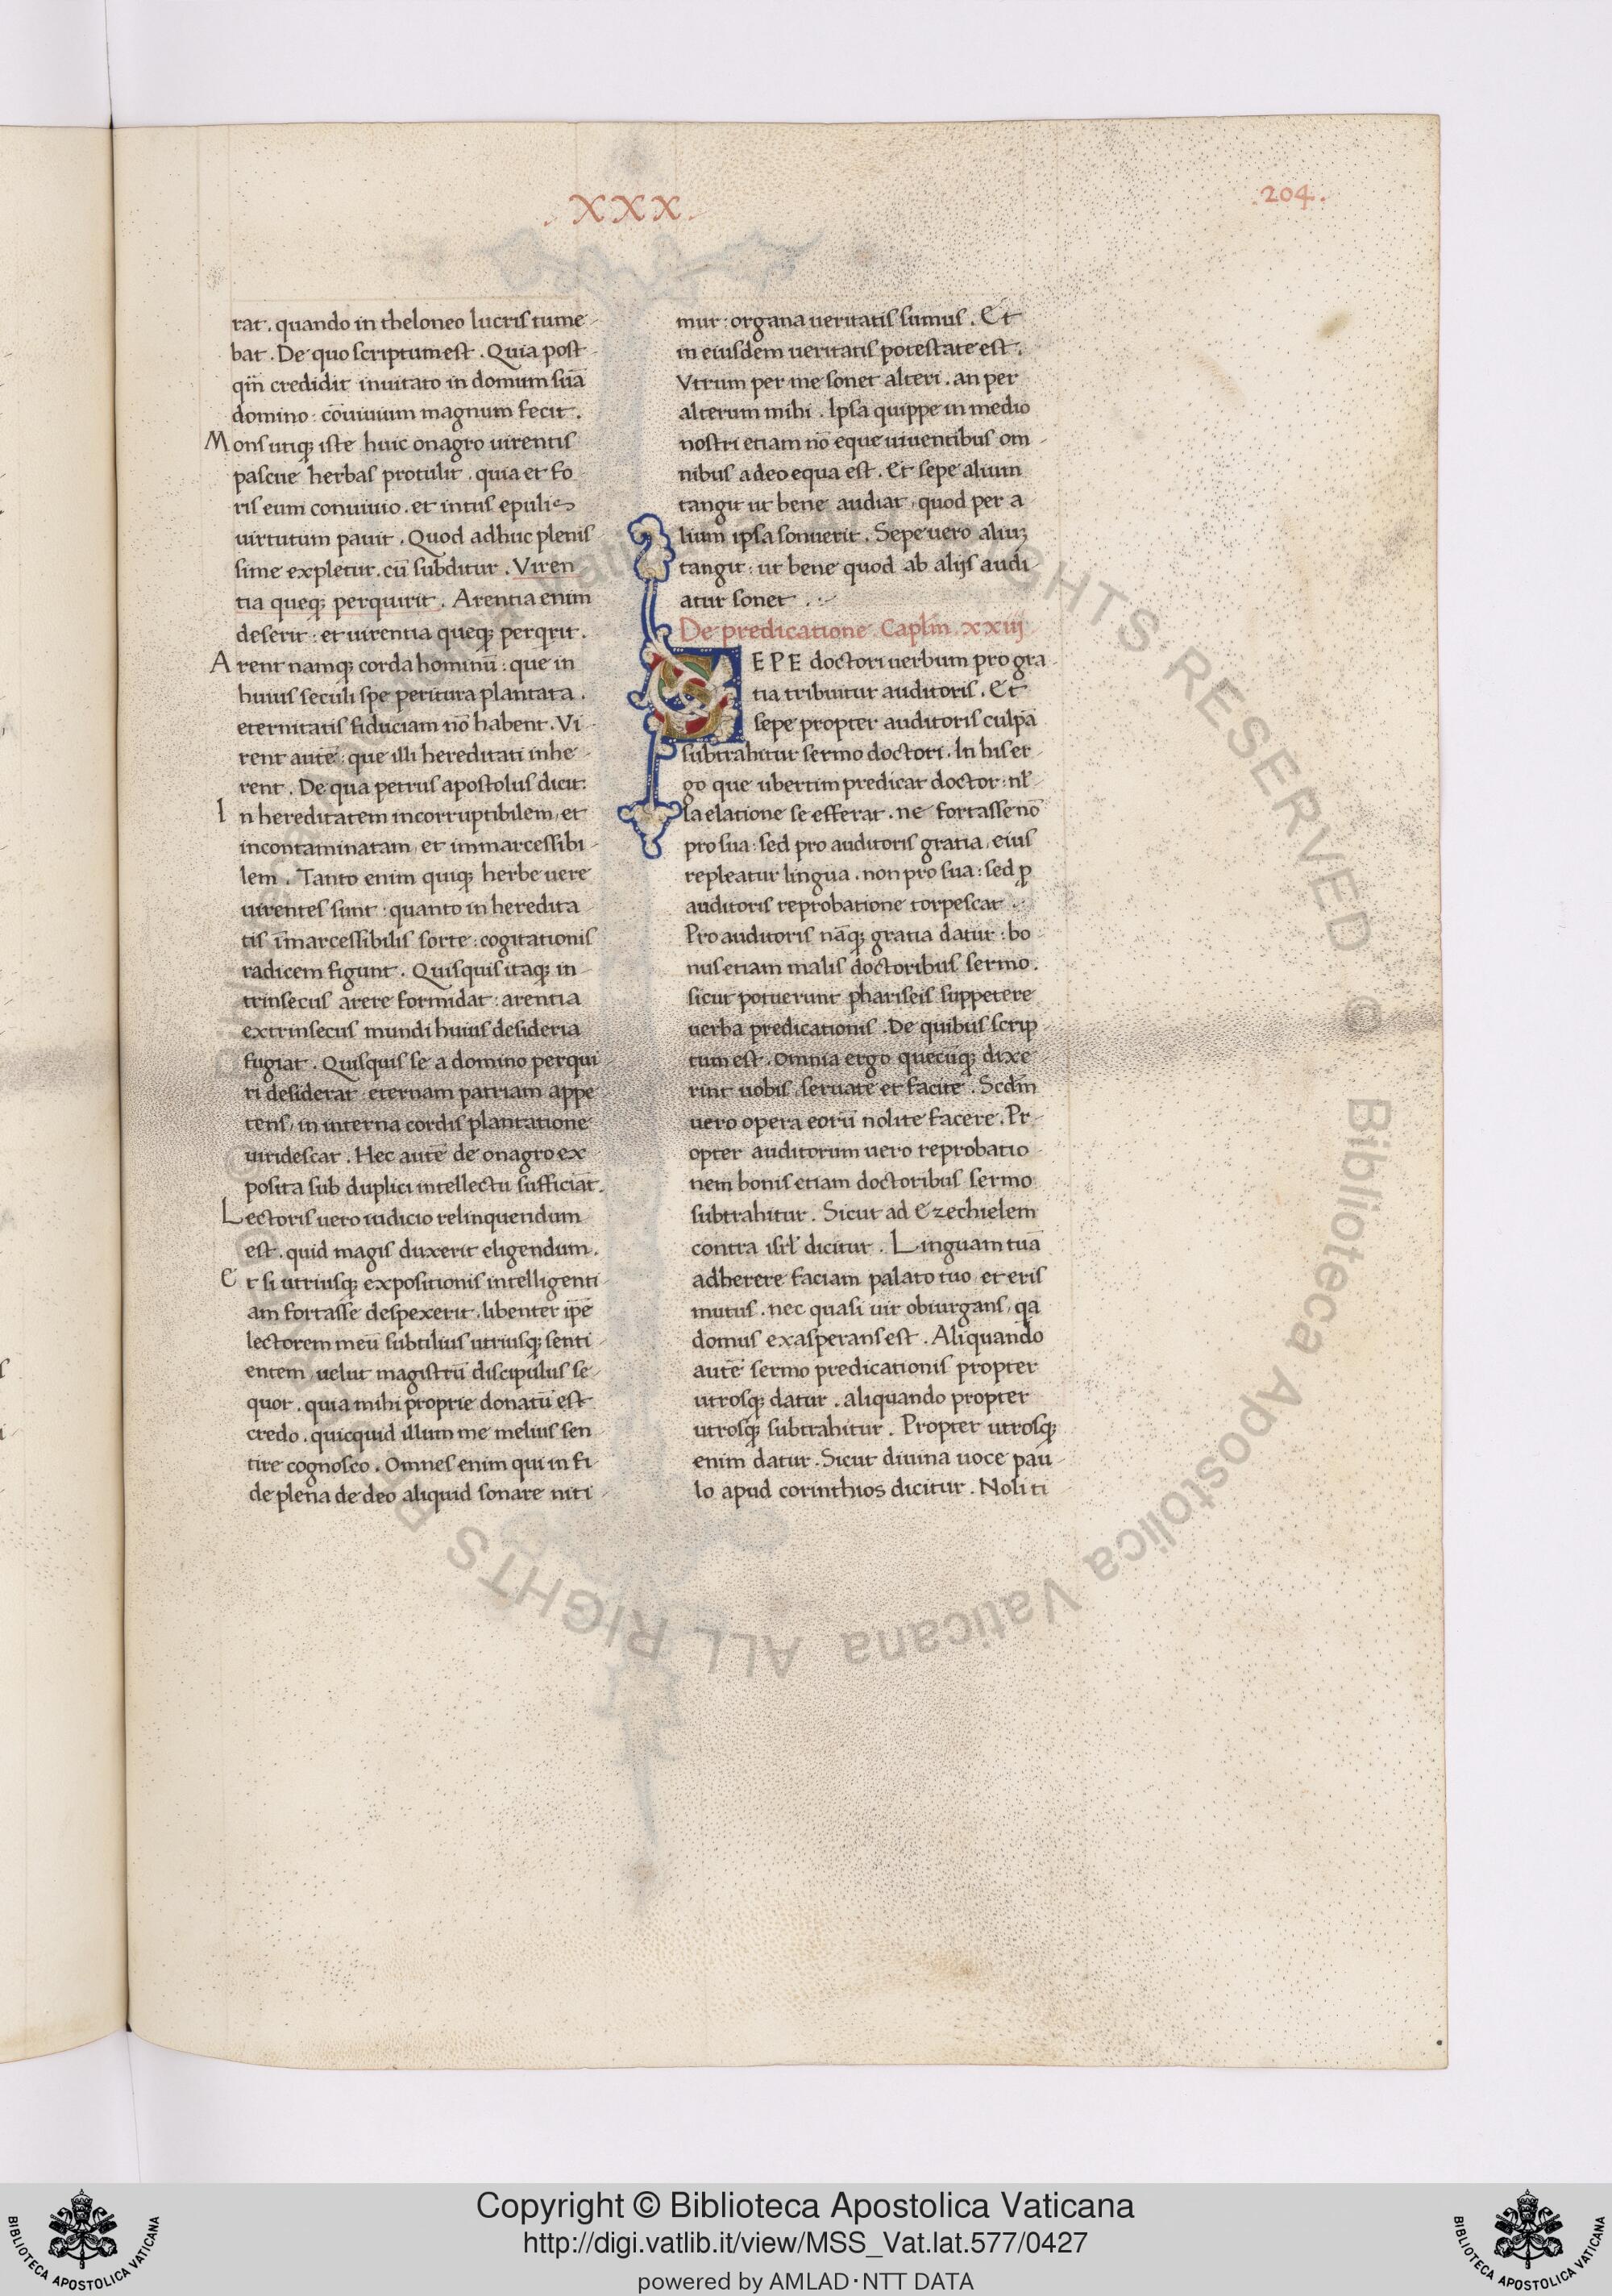 .XXX.
.204.
rat. quando in theloneo lucris tume-
bat. De quo scriptum est. Quia post-
qm̄ credidit inuitato in domum suā
domino: cōuiuium magnum fecit.
Mons utiq; iste huic onagro uirentis
pascue herbas protulit. quia et fo-
ris eum conuiuio. et intus epulis
uirtutum pauit. Quod adhuc plenis-
sime expletur. cū subditur. Viren-
tia queq; perquirit. Arentia enim
deserit: et uirentia queq; perqrit.
Arent namq; corda hominū: que in
huius seculi spe peritura plantata.
eternitatis fiduciam nō habent. Vi-
rent autē: que illi hereditati inhe-
rent. De qua petrus apostolus dicit:
In hereditatem incorruptibilem, et
incontaminatam, et immarcessibi-
lem. Tanto enim quiq; herbe uere
uirentes sunt: quanto in heredita-
tis īmarcessibilis sorte: cogitationis
radicem figunt. Quisquis itaq; in-
trinsecus arere formidat: arentia
extrinsecus mundi huius desideria
fugiat. Quisquis se a domino perqui-
ri desiderat: eternam patriam appe-
tens, in interna cordis plantatione
uiridescat. Hec autē de onagro ex-
posita sub duplici intellectu sufficiāt.
Lectoris uero iudicio relinquendum
est. quid magis duxerit eligendum.
Et si utriusq; expositionis intelligenti-
am fortasse despexerit. libenter ipē
lectorem meū subtilius utriusq; senti-
entem, uelut magistrū discipulus se-
quor. quia mihi proprie donatū est
credo. quicquid illum me melius sen-
tire cognosco. Omnes enim qui in fi-
de plena de deo aliquid sonare niti-
mur: organa ueritatis sumus. Et
in eiusdem ueritatis potestate est.
Vtrum per me sonet alteri. an per
alterum mihi. Ipsa quippe in medio
nostri etiam nō eque uiuentibus om-
nibus adeo equa est. Et sepe alium
tangit ut bene audiat, quod per a-
lium ipsa sonuerit. Sepe uero aliuꝫ
tangit: ut bene quod ab alijs audi-
atur sonet.
De predicatione. Caplm̄. xxiij
SEPE doctori uerbum pro gra-
tia tribuitur auditoris. Et
sepe propter auditoris culpā
subtrahitur sermo doctori. In his er-
go que ubertim predicat doctor: nl̄-
la elatione se efferat. ne fortasse nō
pro sua: sed pro auditoris gratia, eius
repleatur lingua. non pro sua: sed ꝑ
auditoris reprobatione torpescat.
Pro auditoris nāq; gratia datur: bo-
nus etiam malis doctoribus sermo.
sicut potuerunt phariseis suppetere
uerba predicationis. De quibus scrip-
tum est. Omnia ergo quecūq; dixe-
rint uobis, seruate et facite. Scdm̄
uero opera eorū nolite facere. Pr-
opter auditorum uero reprobatio-
nem bonis etiam doctoribus sermo
subtrahitur. Sicut ad Ezechielem
contra isrl̄ dicitur. Linguam tuā
adherere faciam palato tuo, et eris
mutus. nec quasi uir obiurgans, qa
domus exasperans est. Aliquando
autē sermo predicationis propter
utrosq; datur. aliquando propter
utrosq; subtrahitur. Propter utrosq;
enim datur. Sicut diuina uoce pau-
lo apud corinthios dicitur. Noli ti-
Copyright © Biblioteca Apostolica Vaticana
http://digi.vatlib.it/view/MSS_Vat.lat.577/0427
powered by AMLAD·NTT DATA
BIBLIOTECA APOSTOLICA VATICANA
BIBLIOTECA APOSTOLICA VATICANA
Biblioteca Apostolica Vaticana ALL RIGHTS RESERVED ©